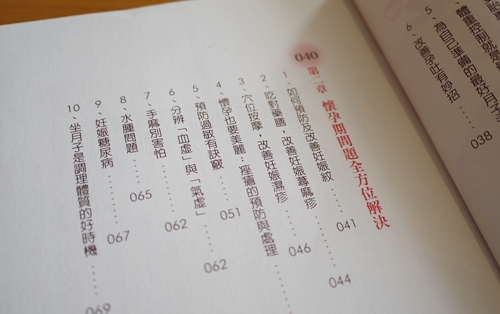 體重控制就
5、為自己準備的最好月子
6、改善孕吐有妙招……038
040 第二章 懷孕期問題全方位解決
1、如何預防及改善妊娠紋……041
2、吃對藥膳，改善妊娠蕁麻疹……044
3、穴位按摩，改善妊娠濕疹……046
4、懷孕也要美麗：痤瘡的預防與處理……
5、預防過敏有訣竅……051
6、分辨「血虛」與「氣虛」……062
7、手麻別害怕……062
8、水腫問題……065
9、妊娠糖尿病……067
10、坐月子是調理體質的好時機……069